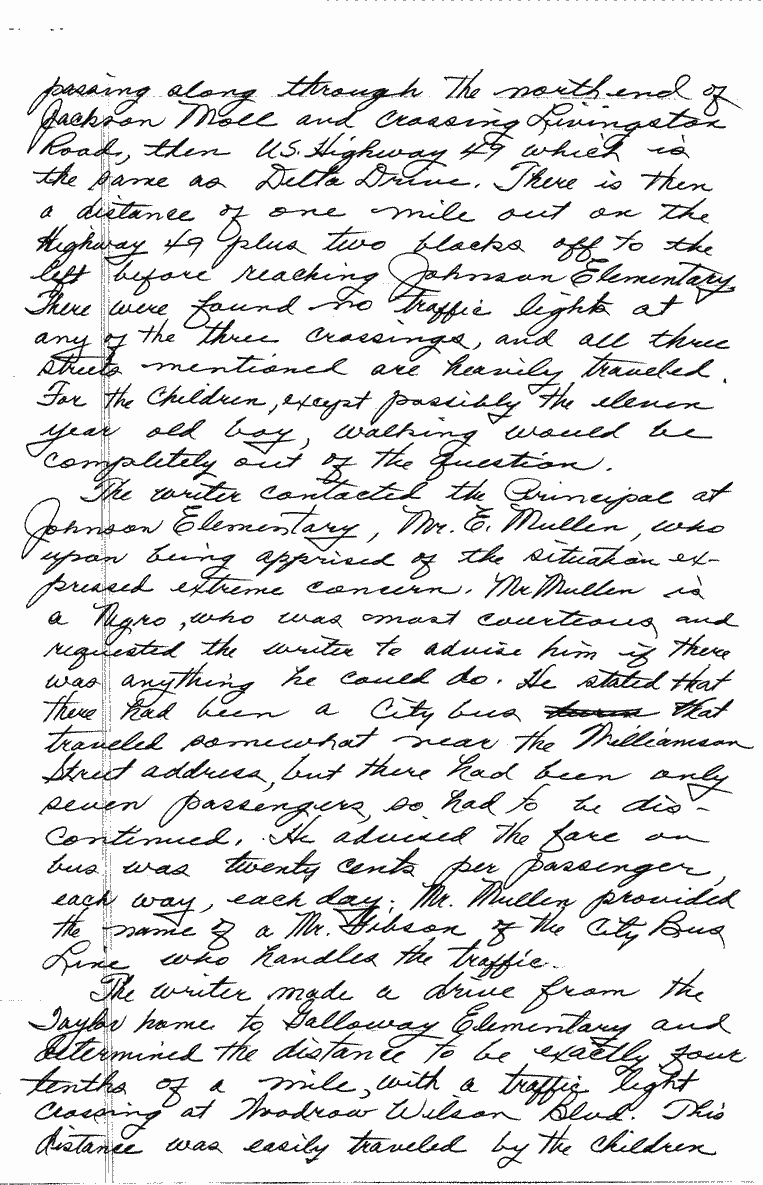 passing along through the north end of
Jackson Mall and crossing Livingston
Road, then U.S. Highway 49 which is
the same as Delta Drive. There is then
a distance of one mile out on the
Highway 49 plus two blocks off to the
left before reaching Johnson Elementary.
There were found no traffic lights at
any of the three crossings, and all three
streets mentioned are heavily traveled.
For the children, except possibly the eleven
year old boy, walking would be
completely out of the question.
The writer contacted the Principal at
Johnson Elementary, Mr. E. Mullen, who
upon being apprised of the situation ex-
pressed extreme concern. Mr. Mullen is
a Negro, who was most courteous and
requested the writer to advise him if there
was anything he could do. He stated that
there had been a City bus that
traveled somewhat near the Williamson
Street address, but there had been only
seven passengers, so had to be dis-
continued. He advised the fare on
bus was twenty cents per passenger,
each way, each day. Mr. Mullen provided
the name of a Mr. Gibson of the City Bus
Line who handles the traffic.
The writer made a drive from the
Taylor home to Galloway Elementary and
determined the distance to be exactly four
tenths of a mile, with a traffic light
crossing at Woodrow Wilson Blvd. This
distance was easily traveled by the children